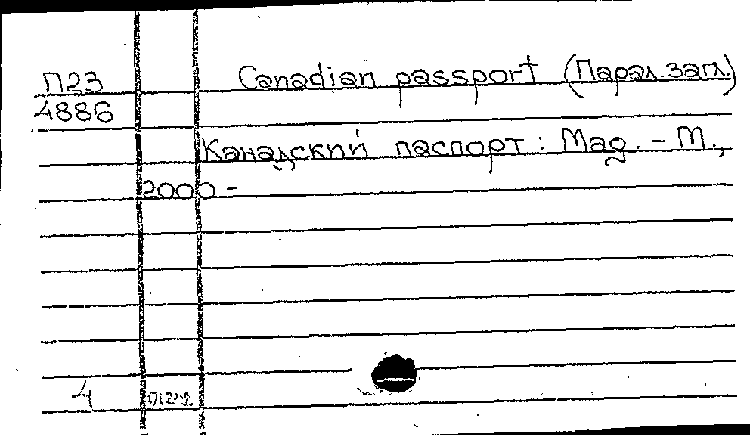 П23 Canadian passport (Парал. загл.)
4886
Канадский паспорт : Mag. - М.,
2000 -
4